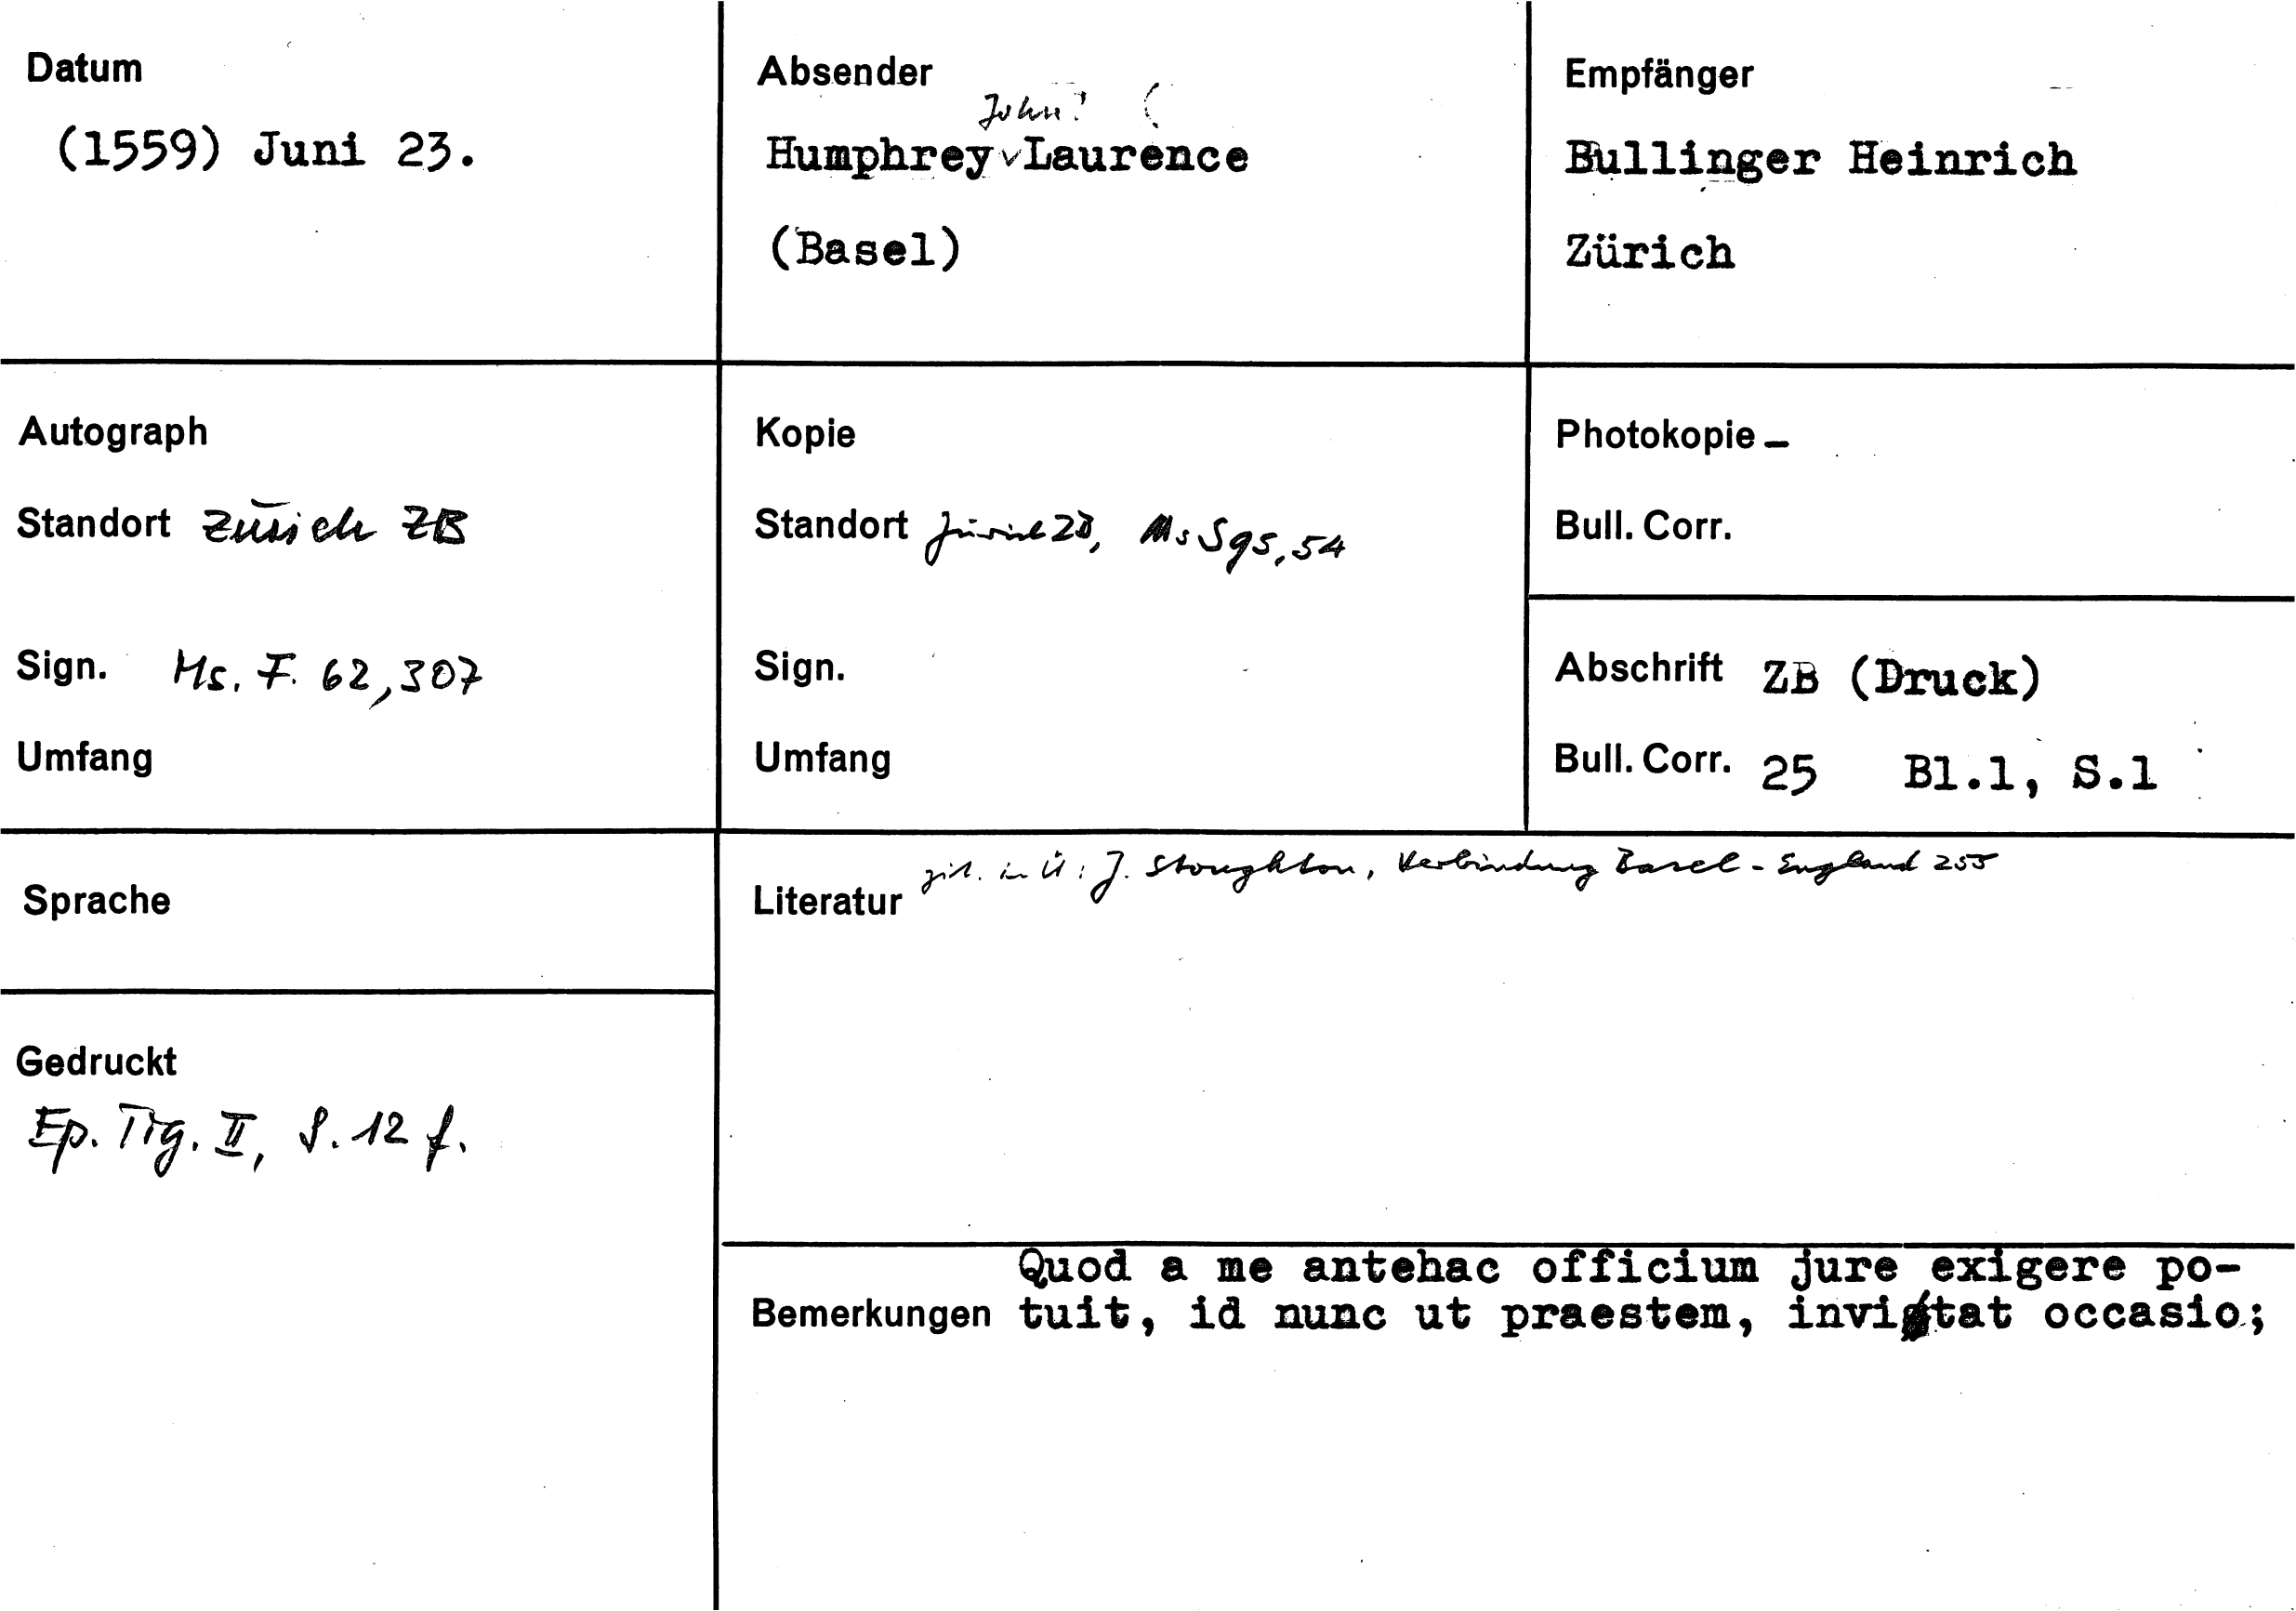 Datum
(1559) Juni 23.
Absender
John?
Humphrey Laurence
(Basel)
Empfänger
Bullinger Heinrich
Zürich
Autograph
Standort Zürich ZB
Sign. Ms. F. 62,307
Umfang
Kopie
Standort Zürich ZB, Ms S 95, 54
Sign.
Umfang
Photokopie –
Bull. Corr.
Abschrift ZB (Druck)
Bull. Corr. 25 Bl.1, S.1
Sprache
Gedruckt
Ep. Tig. II, S. 12 f.
Literatur zit. in Ü: J. Stoughton, Verbindung Basel - England 255
Quod a me antehac officium jure exigere po-
Bemerkungen tuit, id nunc ut praestem, invitat occasio;